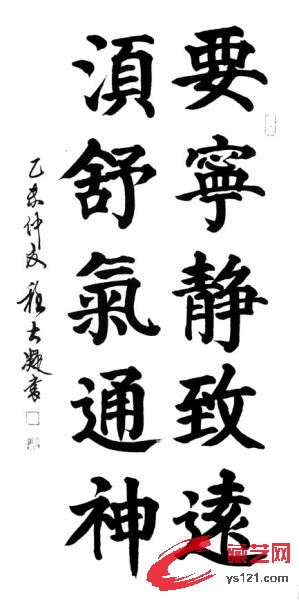 要寧静致遠
湏舒氣通神
乙未仲夏 程大凝書
藏艺网
ys121.com